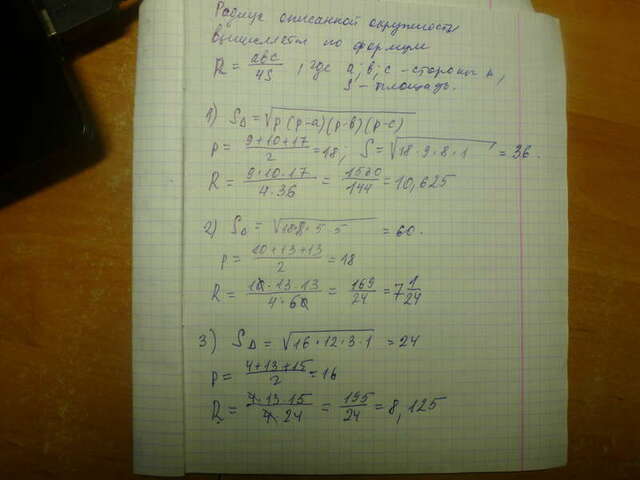 Радиус описанной окружности
вычисляется по формуле
R = abc/4S, где a; в; с - стороны Δ,
S - площадь.
1) SΔ = √p(p-a)(p-в)(p-c)
p = (9+10+17)/2 = 18; S = √18·9·8·1 = 36.
R = (9·10·17)/(4·36) = 1530/144 = 10,625
2) SΔ = √18·8·5·5 = 60.
p = (10+13+13)/2 = 18
R = (10·13·13)/(4·60) = 169/24 = 7 1/24
3) SΔ = √16·12·3·1 = 24
p = (4+13+15)/2 = 16
R = (4·13·15)/(4·24) = 195/24 = 8,125